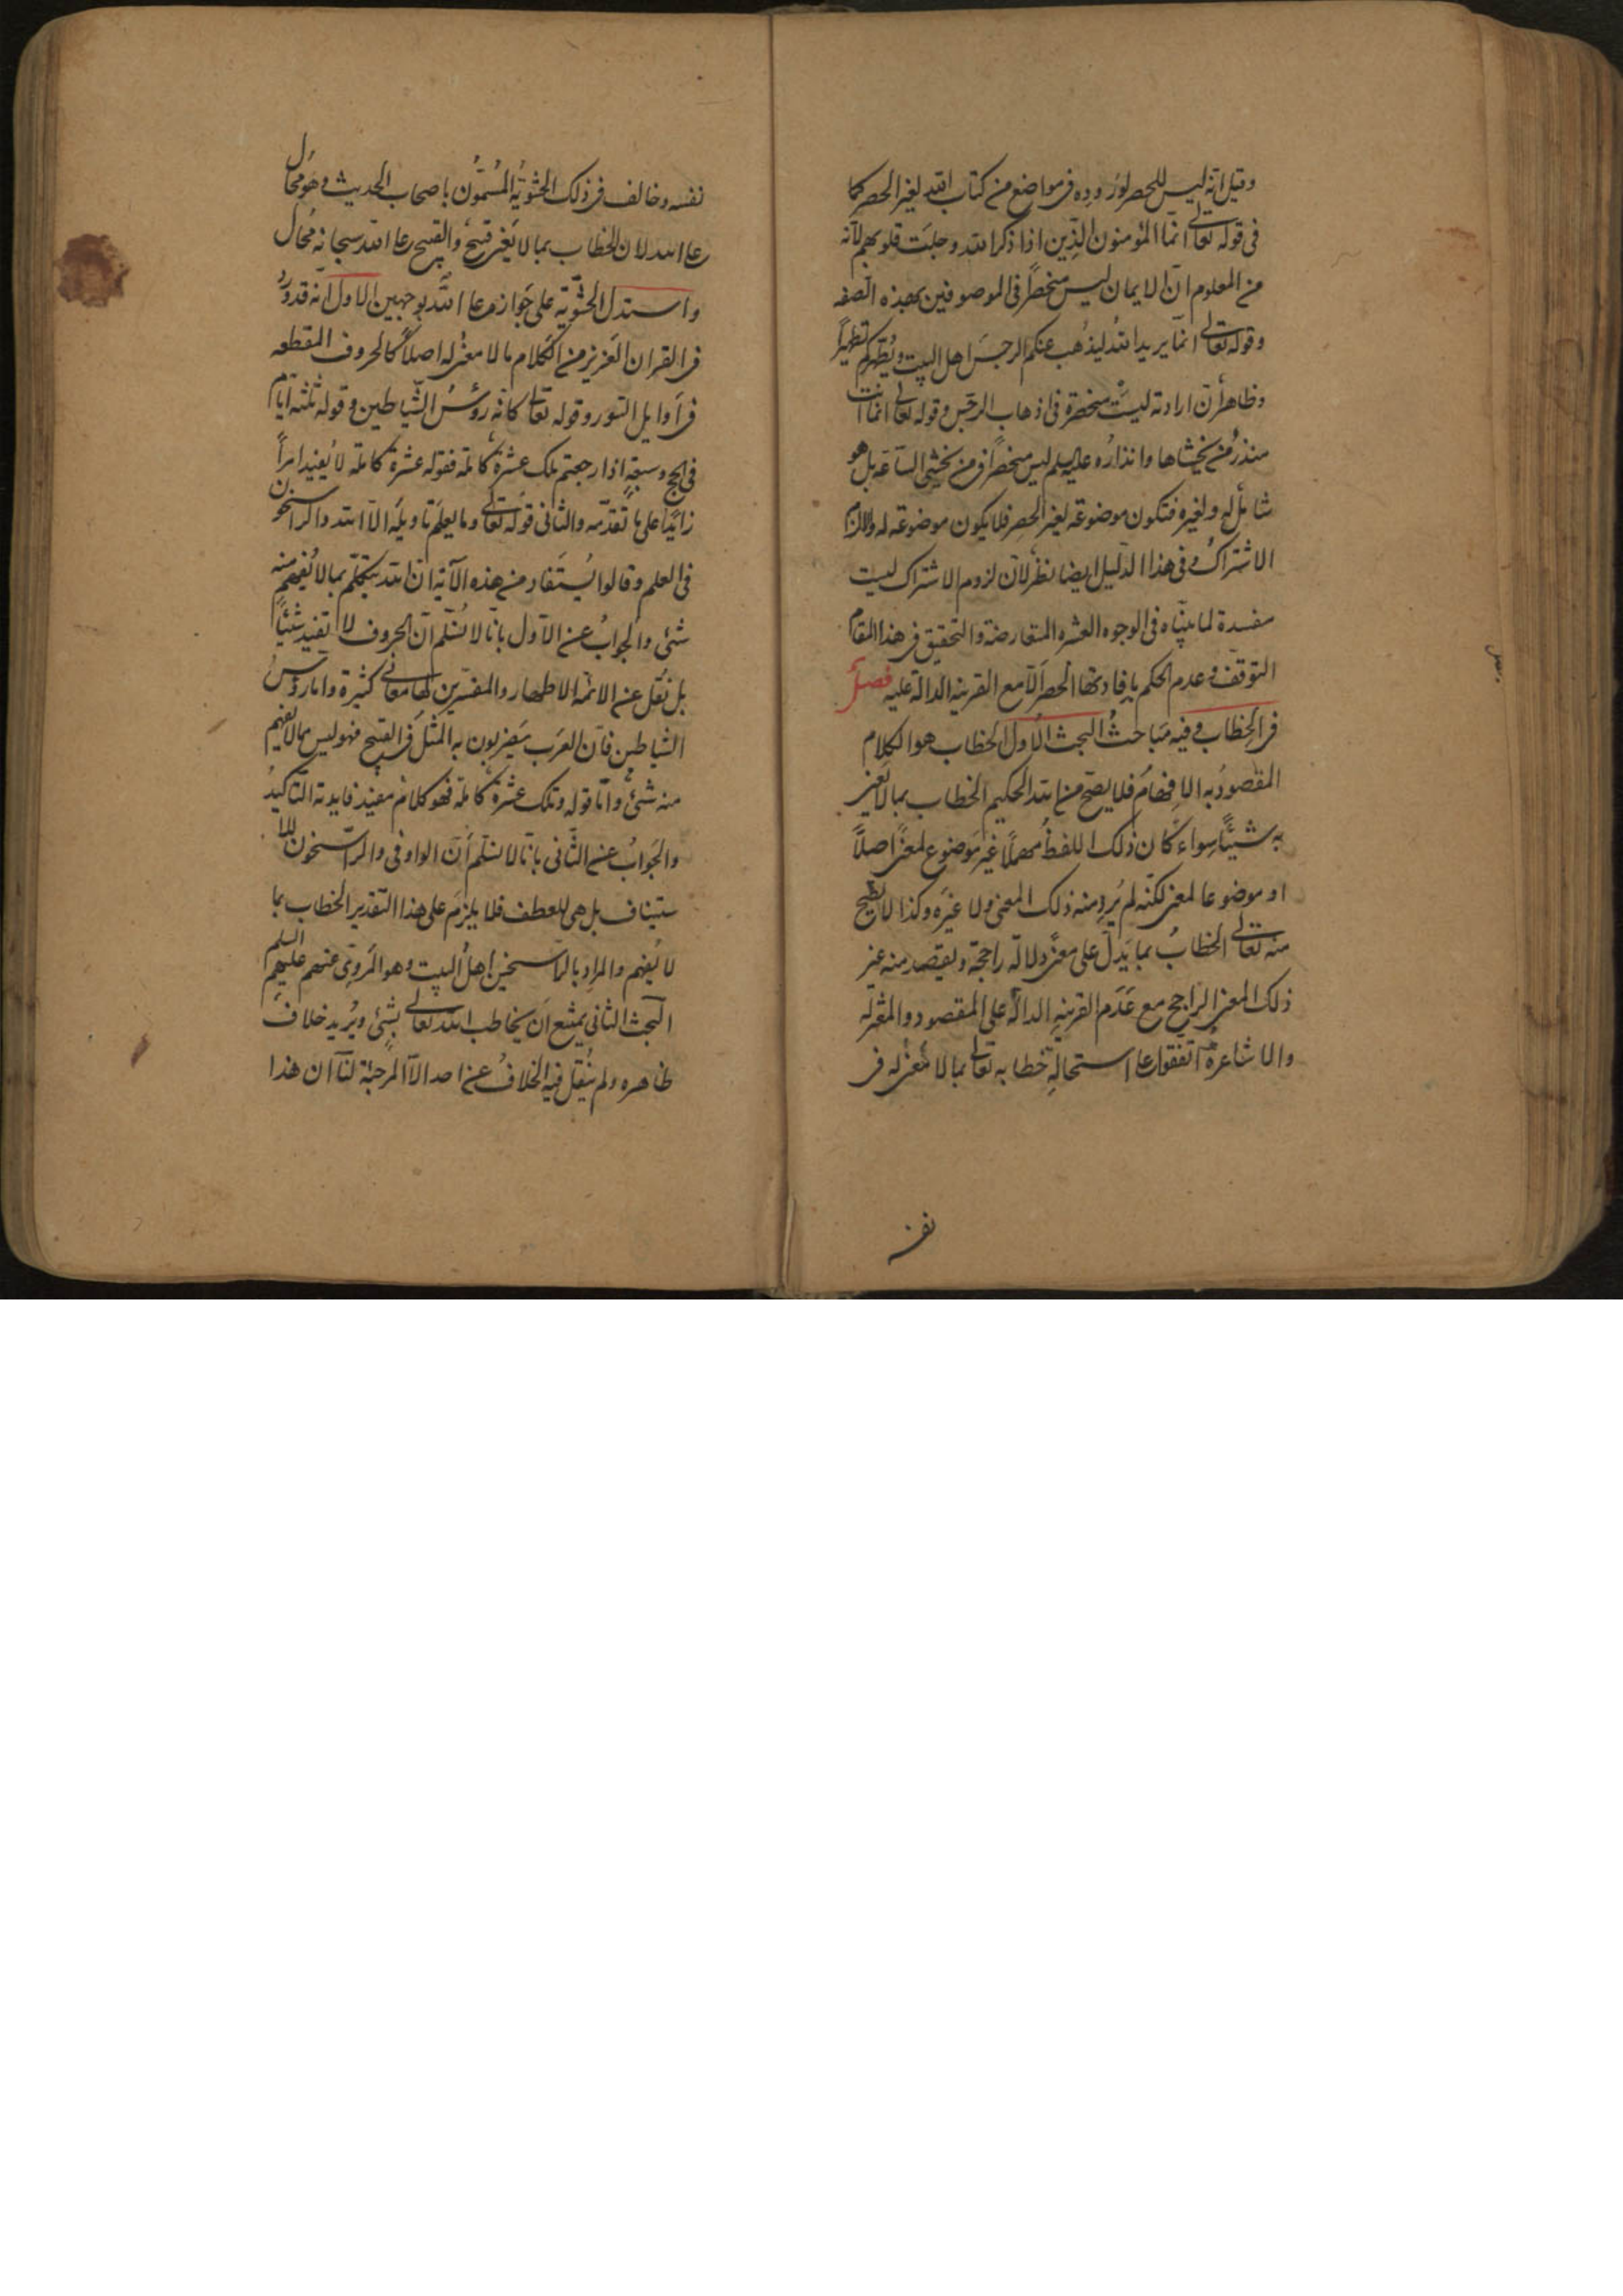 وقيل انه ليس للحصر لوروده فى مواضع من كتاب الله لغير الحصر كما
فى قوله تعالى انما المؤمنون الذين اذا ذكر الله وجلت قلوبهم لانه
من المعلوم ان الايمان ليس منحصرا فى الموصوفين بهذه الصفه
وقوله تعالى انما يريد الله ليذهب عنكم الرجس اهل البيت ويطهركم تطهيرا
وظاهر ان ارادته ليست منحصرة فى اذهاب الرجس وقوله تعالى انما انت
منذر من يخشاها وانذاره عليه السلم ليس منحصرا فى من يخشى الساعة بل هو
شامل له ولغيره فتكون موضوعة لغير الحصر فلا يكون موضوعة له والا لزم
الاشتراك وفى هذا الدليل ايضا نظر لان لزوم الاشتراك ليست
مفسدة لما بيناه فى الوجوه العشره المتعارضة والتحقيق فى هذا المقام
التوقف وعدم الحكم بافادتها الحصر الا مع القرينه الدالة عليه فصل
فى الخطاب وفيه مباحث البحث الاول الخطاب هو الكلام
المقصود به الافهام فلا يصح من الله الحكيم الخطاب بما لا يعنى
به شيئا سواء كان ذلك اللفظ مهملا غير موضوع لمعنى اصلا
او موضوعا لمعنى لكنه لم يرد منه ذلك المعنى ولا غيره وكذا لا يصح
منه تعالى الخطاب بما يدل على معنى دلالة راجحة ويقصد منه غير
ذلك المعنى الراجح مع عدم القرينه الدالة على المقصود والمعتزله
والاشاعرة اتفقوا على استحالة خطابه تعالى بما لا معنى له فى
نفسه
نفسه وخالف فى ذلك الحشوية المسمون باصحاب الحديث وهو محال
على الله لان الخطاب بما لا يعنى قبيح والقبيح على الله سبحانه محال
واستدل الحشوية على جوازه على الله بوجهين الاول انه قد ورد
فى القران العزيز من الكلام ما لا معنى له اصلا كالحروف المقطعه
فى اوايل السور وقوله تعالى كانه رؤس الشياطين وقوله ثلثة ايام
فى الحج وسبعة اذا رجعتم تلك عشرة كاملة فقوله عشرة كاملة لا يفيد امرا
زايدا على ما تقدمه والثانى قوله تعالى وما يعلم تاويله الا الله والراسخون
فى العلم وقالوا يستفاد من هذه الآية ان الله يتكلم بما لا يفهم منه
شئ والجواب عن الاول بانا لا نسلم ان الحروف لا تفيد شيئا
بل نقل عن الائمه الاطهار والمفسرين لها معانى كثيرة واما رؤس
الشياطين فان العرب يضربون به المثل فى القبح فهو ليس مما لا يفهم
منه شئ واما قوله وتلك عشرة كاملة فهو كلام مفيد فايدته التاكيد
والجواب عن الثانى بانا لا نسلم ان الواو فى والراسخون للا
ستيناف بل هى للعطف فلا يلزم على هذا التقدير الخطاب بما
لا يفهم والمراد بالراسخين اهل البيت وهو المروى عنهم عليهم السلم
البحث الثانى يمتنع ان يخاطب الله تعالى بشئ ويريد خلاف
ظاهره ولم ينقل فيه الخلاف عن احد الا المرجئة لنا ان هذا